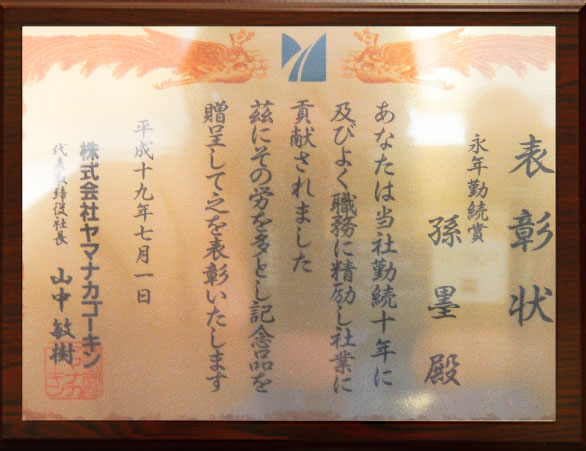 表彰状
永年勤続賞
孫墨殿
あなたは当社勤続十年に
及びよく職務に精励し社業に
貢献されました
茲にその労を多とし記念品を
贈呈して之を表彰いたします
平成十九年七月一日
株式会社ヤマナカゴーキン
代表取締役社長 山中敏樹